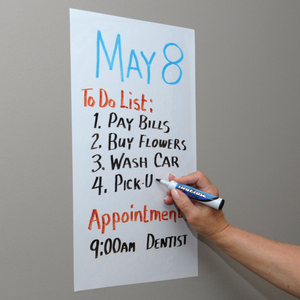 MAY 8
To Do List:
1. PAY BILLS
2. BUY FLOWERS
3. WASH CAR
4. PICK-U
Appointment
9:00AM DENTIST